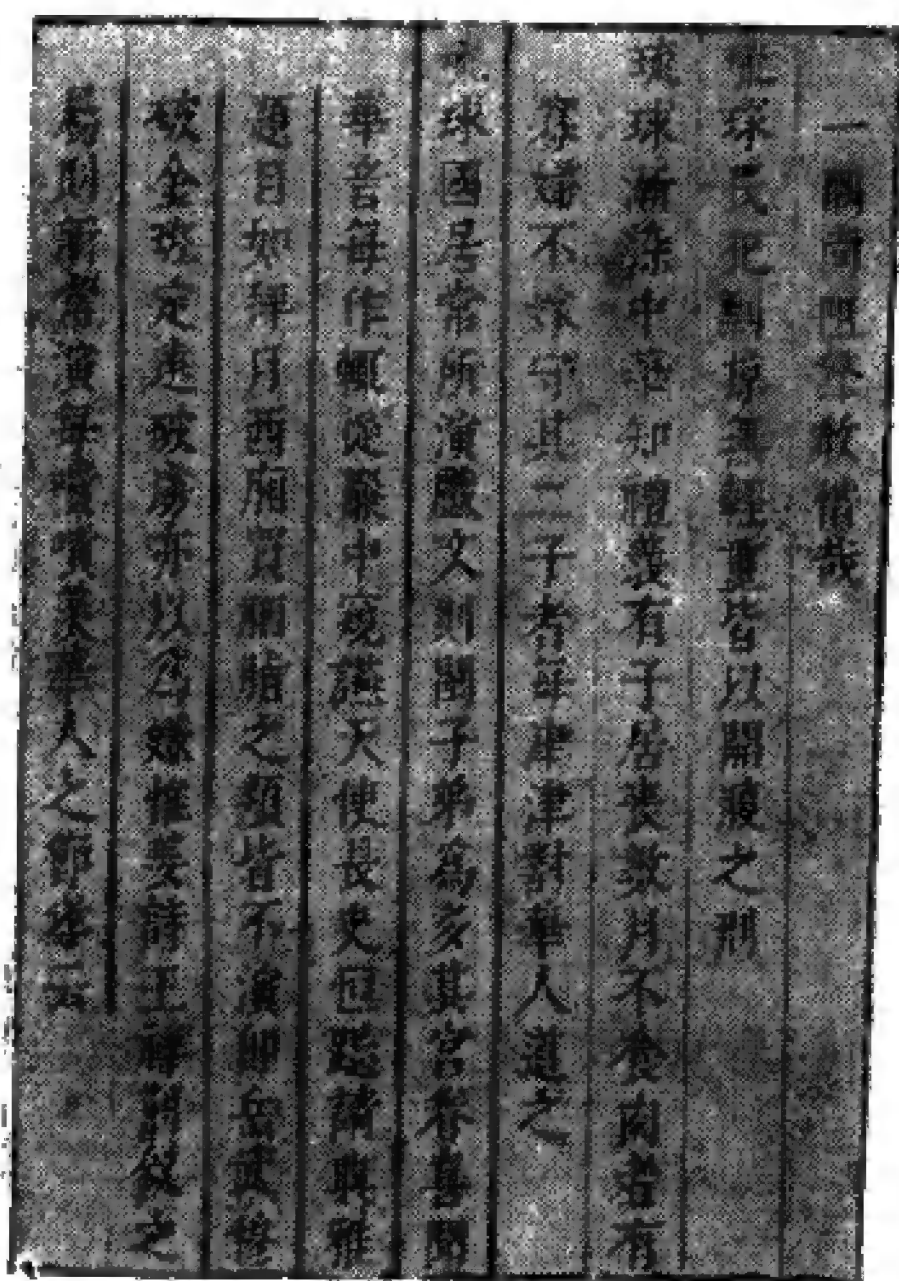 一閣卒故惜哉
琉球民犯無輕重皆以開腹之刑
琉球漸染中華知禮義有子居喪數月不食肉者有
寡婦不嫁守其二子者每津津對華人道之
琉球國居常所演戲文則閩子弟為多其宮眷喜聞
華音每作輒從簾中窺讌天使長史恆跽請典雅
題目如拜月西廂買胭脂之類皆不演即岳武穆
破金班定遠破虜亦以為嫌惟姜詩王祥荊釵之
屬則演每嘖嘖羨華人之節孝云